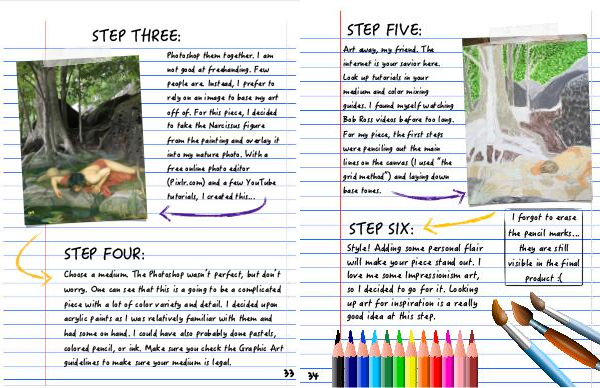 STEP THREE:
Photoshop them together. I am
not good at freehanding. Few
people are. Instead, I prefer to
rely on an image to base my art
off of. For this piece, I decided
to take the Narcissus figure
from the painting and overlay it
into my nature photo. With a
free online photo editor
(Pixlr.com) and a few YouTube
tutorials, I created this...
STEP FOUR:
Choose a medium. The Photoshop wasn't perfect, but don't
worry. One can see that this is going to be a complicated
piece with a lot of color variety and detail. I decided upon
acrylic paints as I was relatively familiar with them and
had some on hand. I could have also probably done pastels,
colored pencil, or ink. Make sure you check the Graphic Art
guidelines to make sure your medium is legal.
33
STEP FIVE:
Art away, my friend. The
internet is your savior here.
Look up tutorials in your
medium and color mixing
guides. I found myself watching
Bob Ross videos before too long.
For my piece, the first steps
were penciling out the main
lines on the canvas (I used "the
grid method") and laying down
base tones.
STEP SIX:
Style! Adding some personal flair
will make your piece stand out. I
love me some Impressionism art,
so I decided to go for it. Looking
up art for inspiration is a really
good idea at this step.
I forgot to erase
the pencil marks...
they are still
visible in the final
product :(
34